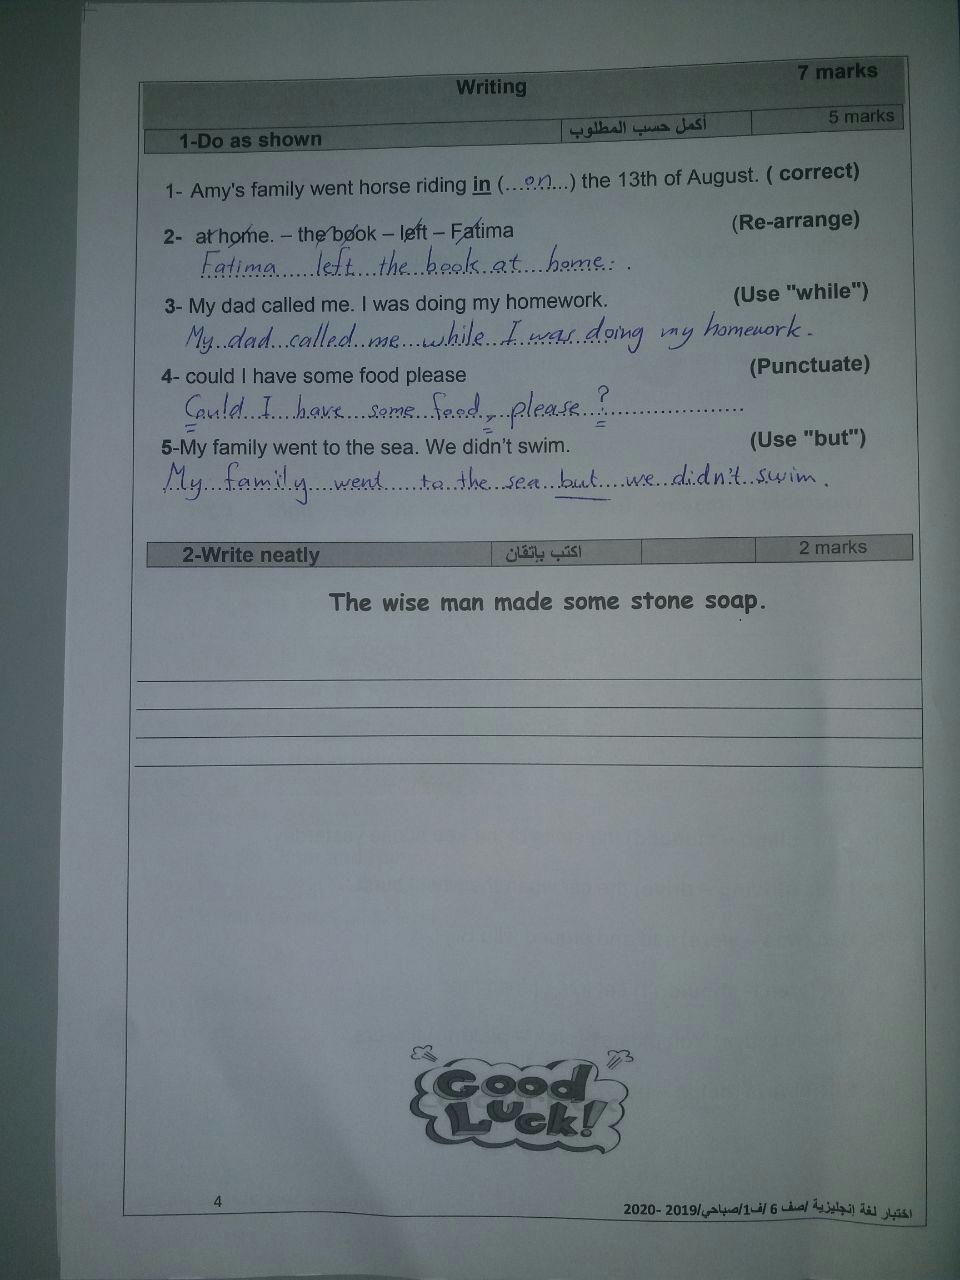 Writing 7 marks
1-Do as shown أكمل حسب المطلوب 5 marks
1- Amy's family went horse riding in (...on...) the 13th of August. ( correct)
2- at home. – the book – left – Fatima (Re-arrange)
Fatima left the book at home.
3- My dad called me. I was doing my homework. (Use "while")
My dad called me while I was doing my homework.
4- could I have some food please (Punctuate)
Could I have some food, please?
5-My family went to the sea. We didn't swim. (Use "but")
My family went to the sea but we didn't swim.
2-Write neatly اكتب بإتقان 2 marks
The wise man made some stone soap.
Good
Luck!
4
اختبار لغة إنجليزية /صف 6 /ف1/صباحي/2019 -2020